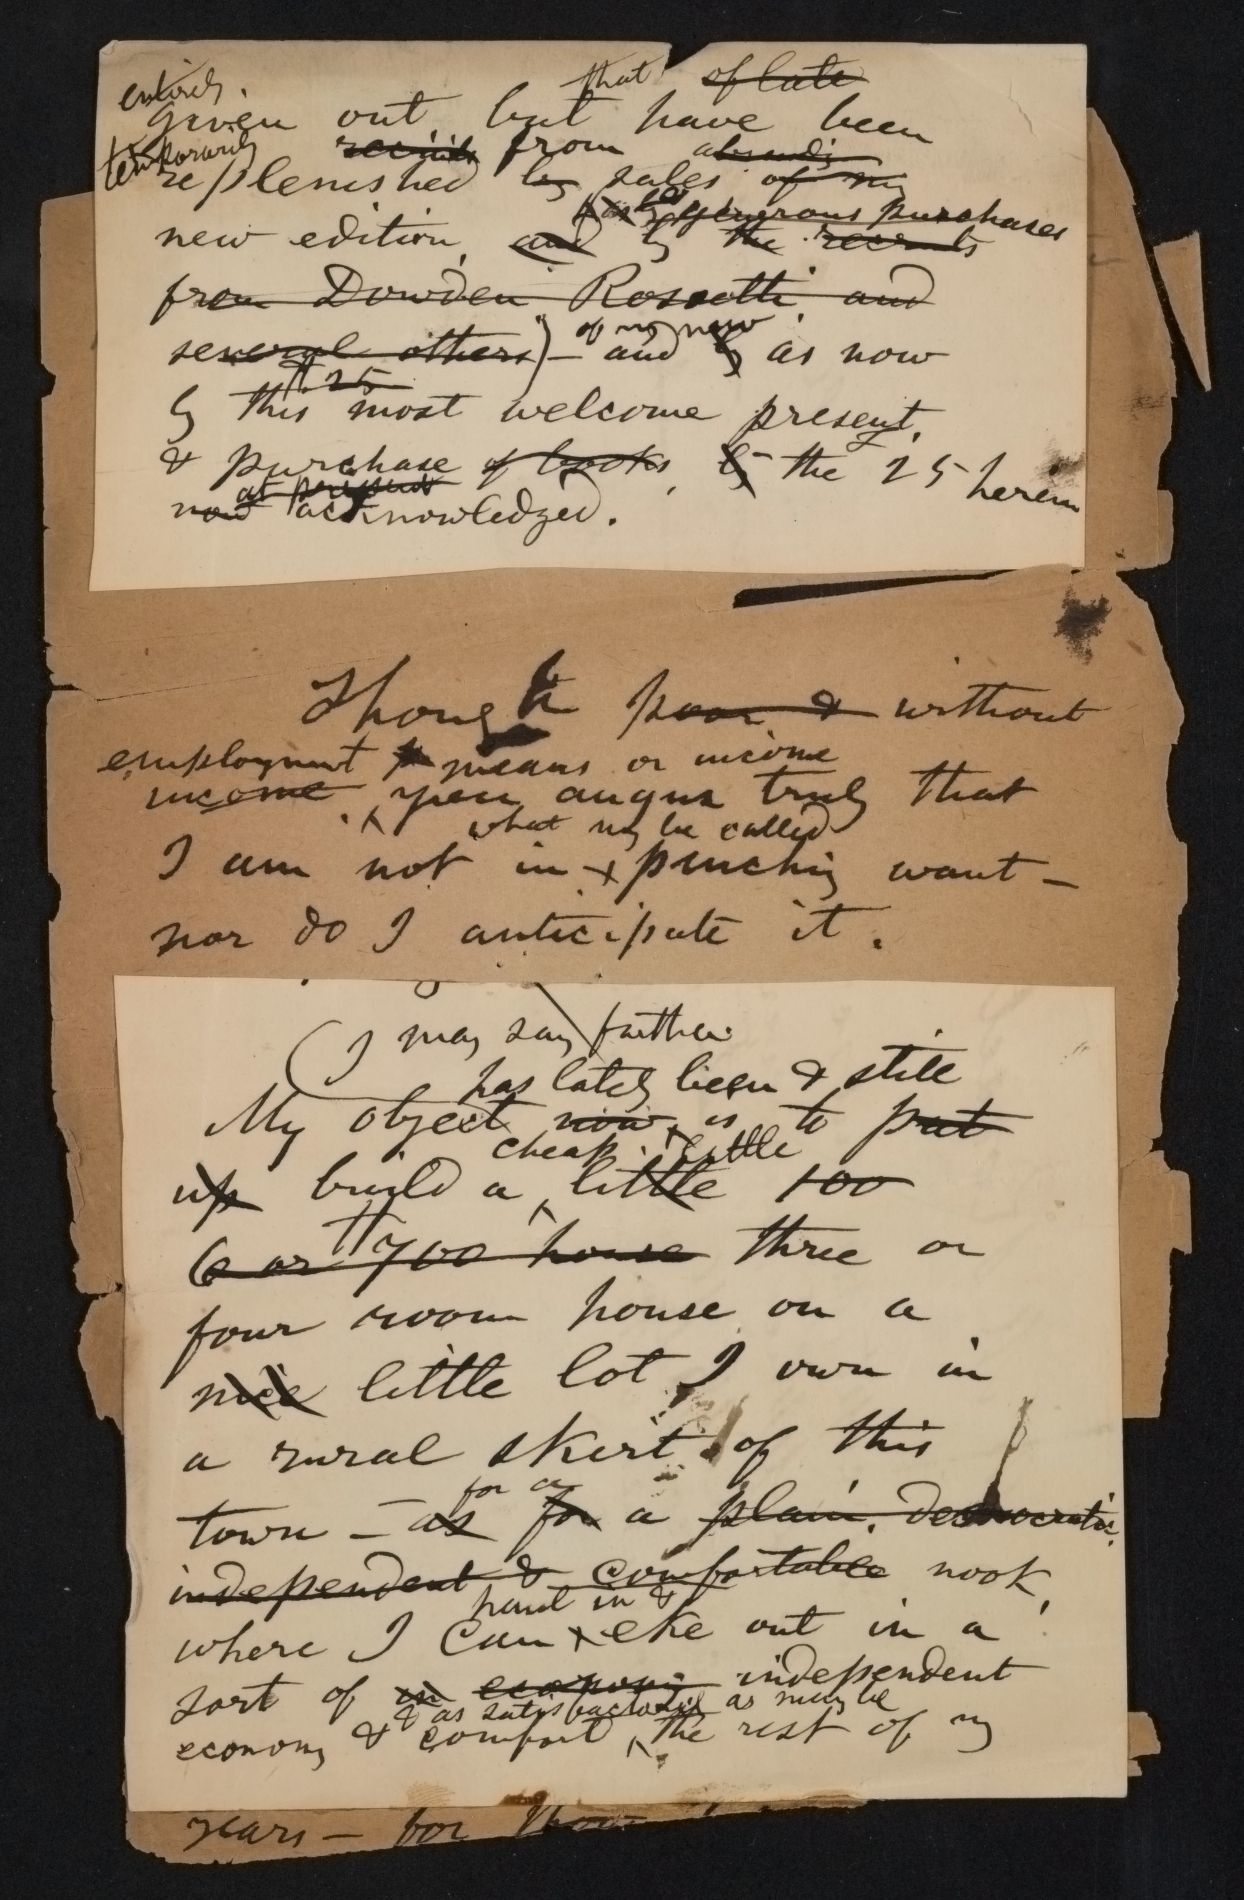 entirely.
that of late
given out but have been
temporarily
from
replenished by sales of my
generous purchases
new edition, and by the recruits
from Dowden Rossetti and
several others) — and by as now
of my new
$25
by this most welcome present,
& purchase of books, by the 25 herein
at present
now acknowledged.
Though poor & without
employment means or income
income, you augur truly that
what may be called
I am not in pinching want —
nor do I anticipate it.
(I may say further
has lately been & still
My object now is to put
cheap little
up build a little 100
6 or $700 house three or
four room house on a
nice little lot I own in
a rural skirt of this
for a
town — as for a plain, democratic,
independent & comfortable nook,
haul in &
where I can eke out in a
sort of in economy independent
& as satisfactorily as may be
economy & comfort the rest of my
years — for